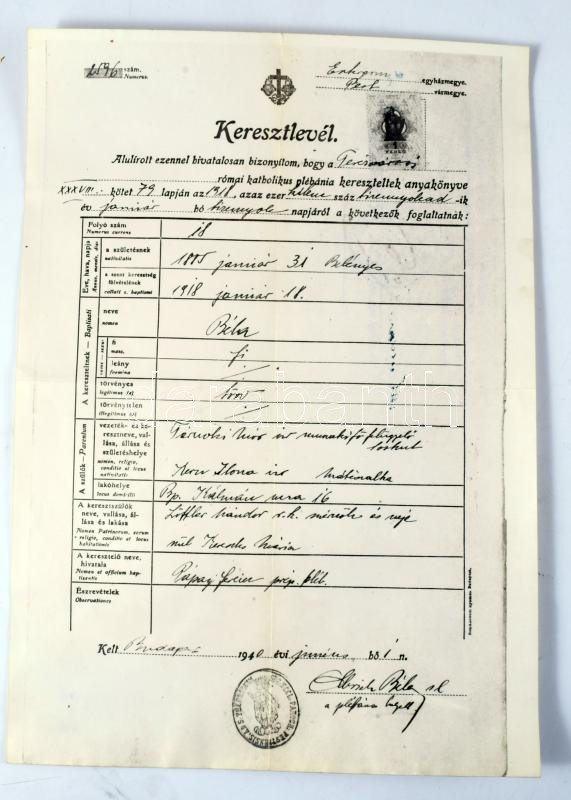 2596 szám.
Numerus.
Pest egyházmegye.
vármegye.
1
PENGŐ
Keresztlevél.
Alulírott ezennel hivatalosan bizonyítom, hogy a Terézvárosi
római katholikus plébánia kereszteltek anyakönyve
XXXVIII. kötet 79 lapján az 1918, azaz ezer száz -ik
év január hó napjáról a következők foglaltatnak:
Folyó szám
Numerus currens
18
Éve, hava, napja
Annus, mensis, dies
a születésnek
nativitatis
1885 január 31 Belényes
a szent keresztség
fölvételének
collati s. baptismi
1918 január 18.
A kereszteltnek — Baptisati
neve
nomen
Béla
fi
masc.
fi
leány
feminina
törvényes
legitimus (a)
törv
törvénytelen
illegitimus (a)
A szülők — Parentum
vezeték- és ke-
resztneve, val-
lása, állása és
születéshelye
nomen, religio,
conditio et locus
nativitatis
Mór izr
Kern Ilona izr Mátészalka
lakóhelye
locus domicilii
Bp. Kálmán ucca 16
A keresztszülők
neve, vallása, ál-
lása és lakása
Nomen Patrinorum, eorum
religio, conditio et locus
habitationis
Löffler Nándor r. k. mérnök és neje
Mária
A keresztelő neve,
hivatala
Nomen et officium bap-
tizantis
Pápay
Észrevételek
Observationes
Kelt Budapest 1940 évi június hó 1 n.
Béla
a plébánia
darabanth